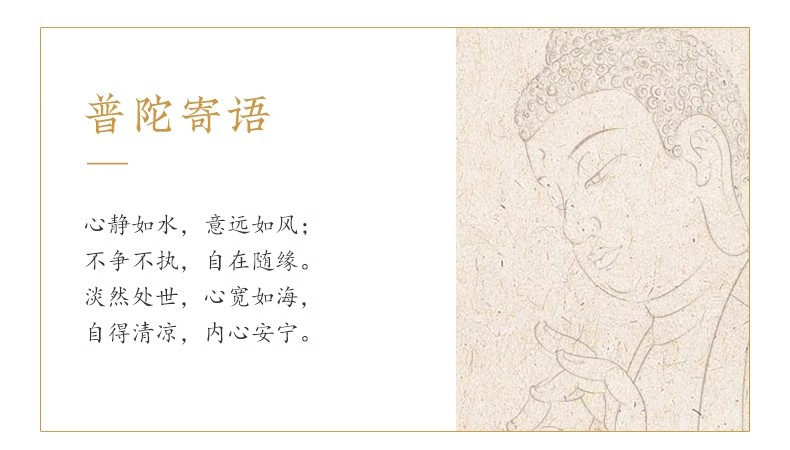 普陀寄语
心静如水，意远如风；
不争不执，自在随缘。
淡然处世，心宽如海，
自得清凉，内心安宁。